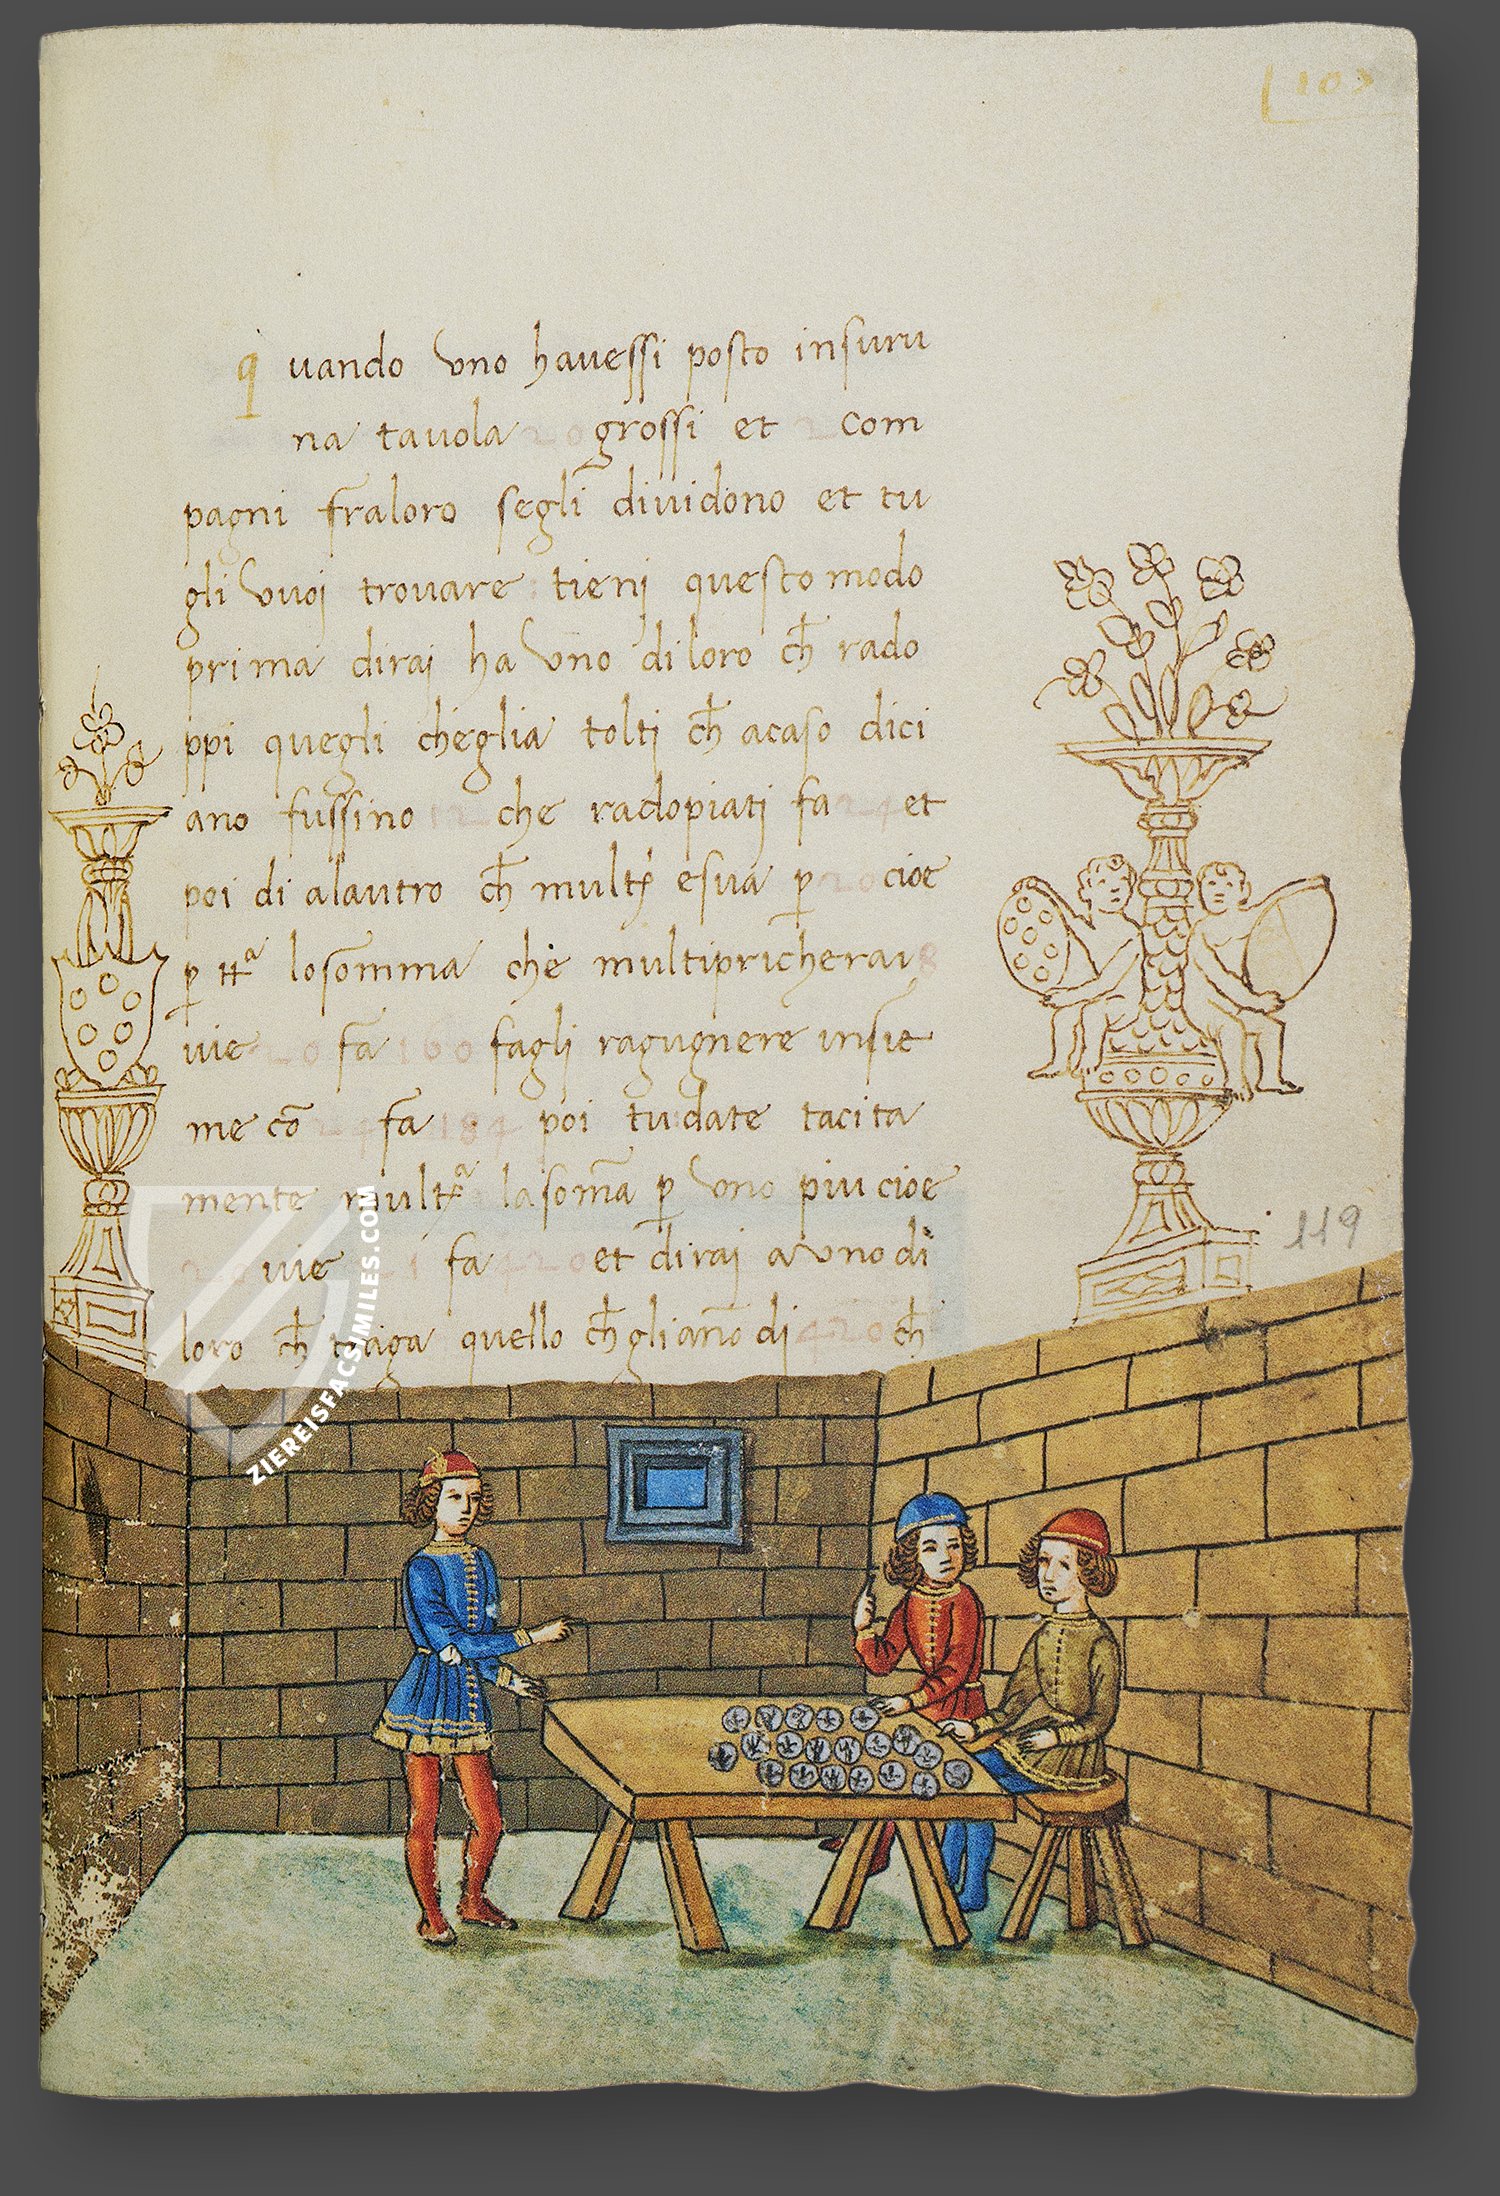 107
quando vno havessi posto insuru
na tavola 20 grossi et 2 com
pagni fraloro segli dividono et tu
gli vuoj trovare tienj questo modo
prima diraj ha vno diloro ch̄ rado
ppi quegli cheglia toltj ch̄ acaso dici
ano fussino 12 che radopiatj fa 24 et
poi di alautro ch̄ multx̄ esua p̱ 20 cioe
p̱ ttª losomma che multipricherai 8
vie 20 fa 160 fagli ragugnere insie
me cō 24 fa 184 poi tudate tacita
mente multxª lasom̄a p̱ vno piu cioe
20 vie 21 fa 420 et diraj avnodi
loro ch̄ traga quello ch̄ gliano dj 420 ch̄
119
ZIEREISFACSIMILES.COM